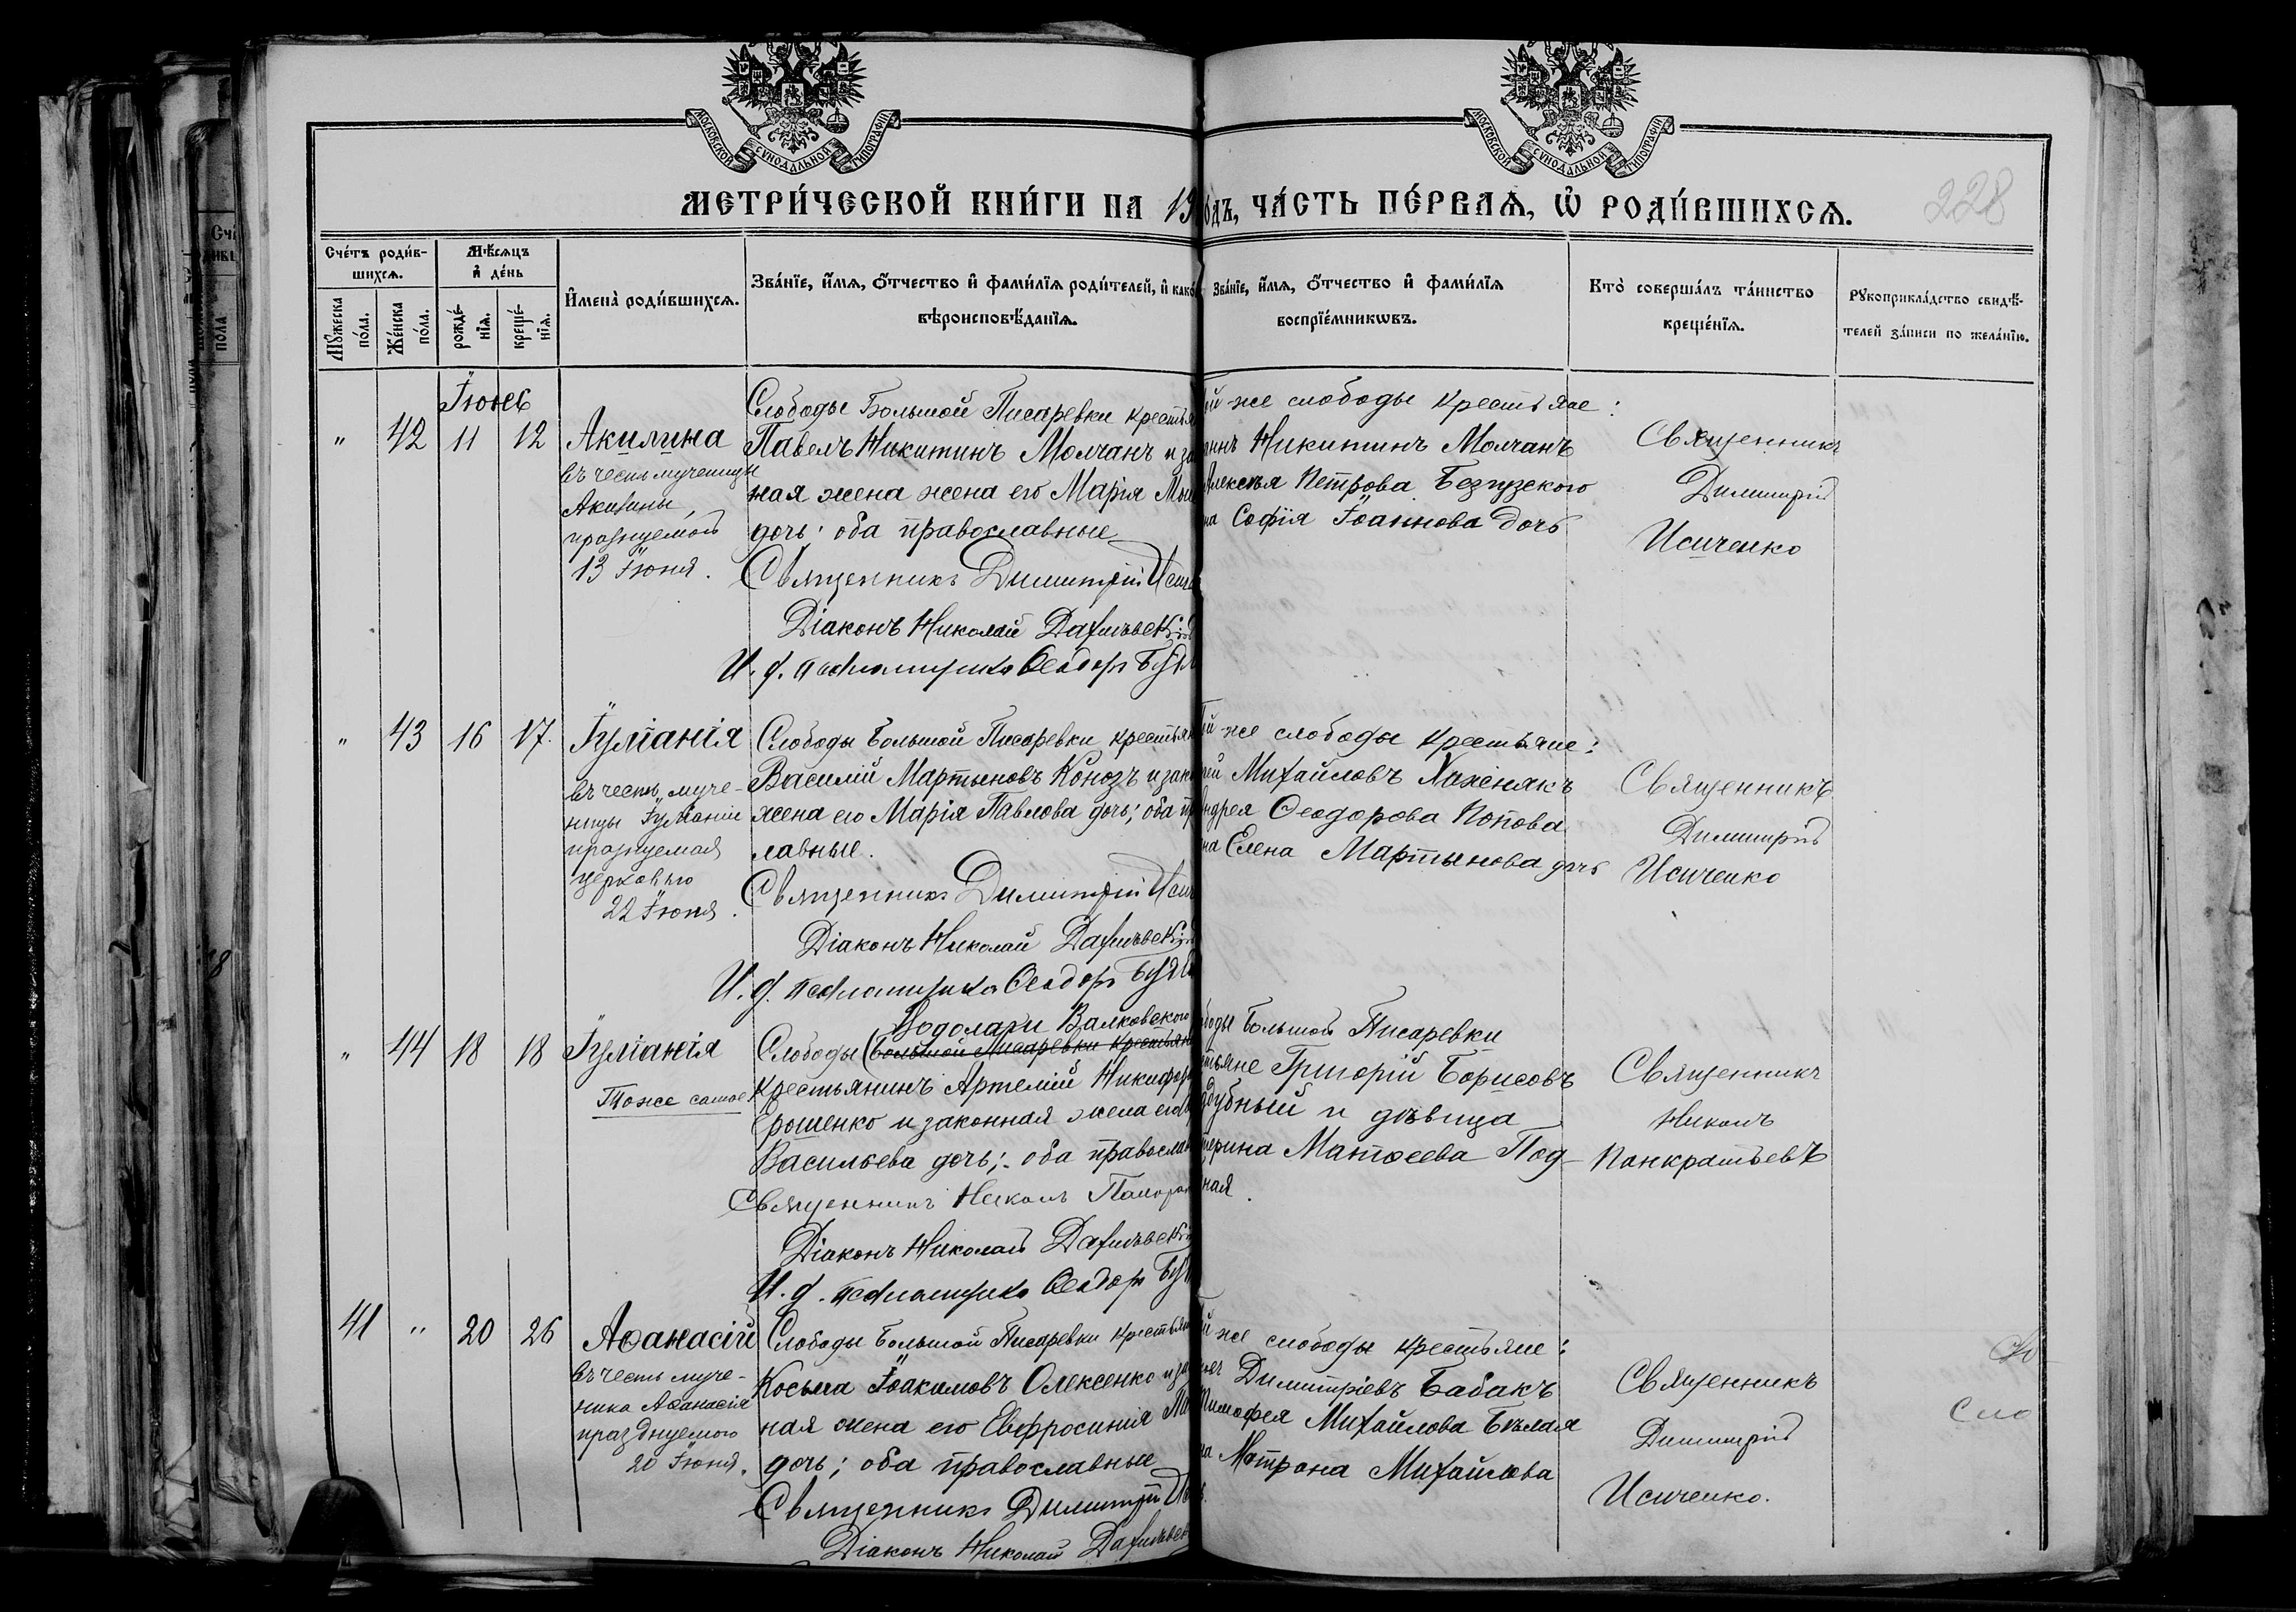 МОСКОВСКОЙ СѴНОДАЛЬНОЙ ТИПОГРАФІИ
МОСКОВСКОЙ СѴНОДАЛЬНОЙ ТИПОГРАФІИ
МЕТРИ́ЧЕСКОЙ КНИ́ГИ НА 19
ДЪ, ЧА́СТЬ ПЕ́РВАЯ, Ѡ РОДИ́ВШИХСЯ.
228
Сче́тъ роди́в-
шихся.
Мѣ́сяцъ
и де́нь
Му́жеска
по́ла.
Же́нска
по́ла.
рожде́-
нїя.
креще́-
нїя.
Имена̀ роди́вшихся.
Зва́нїе, и́мя, о́тчество и фами́лїя роди́телей, и како́
вѣроисповѣ́данїя.
Зва́нїе, и́мя, о́тчество и фами́лїя
воспрїе́мникѡвъ.
Кто̀ соверша́лъ та́инство
креще́нїя.
Рукоприкла́дство свидѣ́-
телей за́писи по жела́нїю.
Іюнь
" 42 11 12
Акилина
въ честь мученицы
Акилины,
празнуемой
13 Іюня.
Слободы Большой Писаревки крестья
Павелъ Никитинъ Молчанъ и за
ная жена жена его Марія
дочь; оба православные
Священникъ Димитрій Исич
Діаконъ Николай
И. д. псаломщика Ѳеодоръ
й же слободы крестьяне:
Никитинъ Молчанъ
Алексѣя Петрова Безпузского
на Софія Іоаннова дочь
Священникъ
Димитрій
Исиченко
" 43 16 17.
Іуліанія
въ честь муче-
ницы Іуліаніи
празнуемая
церковью
22 Іюня.
Слободы Большой Писаревки крестьян
Василій Мартыновъ Конозъ и зак
жена его Марія Павлова дочь; оба пр
лавные.
Священникъ Димитрій Исич
Діаконъ Николай
И. д. псаломщика Ѳеодоръ
й же слободы крестьяне:
Михайловъ
ндрея Ѳеодорова Попова
на Елена Мартынова дочь
Священникъ
Димитрій
Исиченко
" 44 18 18
Іуліанія
Тоже самое
Водолаги Валковского
Слободы (Большой Писаревки крестьян
крестьянинъ Артемій Никифор
Ерошенко и законная жена его
Васильева дочь; оба правосла
Священникъ Никонъ
Діаконъ Николай
И. д. псаломщика Ѳеодоръ
боды Большой Писаревки
стьяне Григорій Борисовъ
дубный и дѣвица
терина Матѳеева Под-
ная.
Священникъ
Никонъ
Панкратьевъ
41 " 20 26
Аѳанасій
въ честь муче-
ника Аѳанасія
празднуемого
20 Іюня.
Слободы Большой Писаревки крестьян
Косьма Іоакимовъ Олексенко и за
ная жена его Евфросинія
дочь; оба православные
Священникъ Димитрій
Діаконъ Николай
й же слободы крестьяне:
Димитріевъ Бабакъ
Тимофея Михайлова Бѣлая
на Матрона Михайлова
Священникъ
Димитрій
Исиченко.